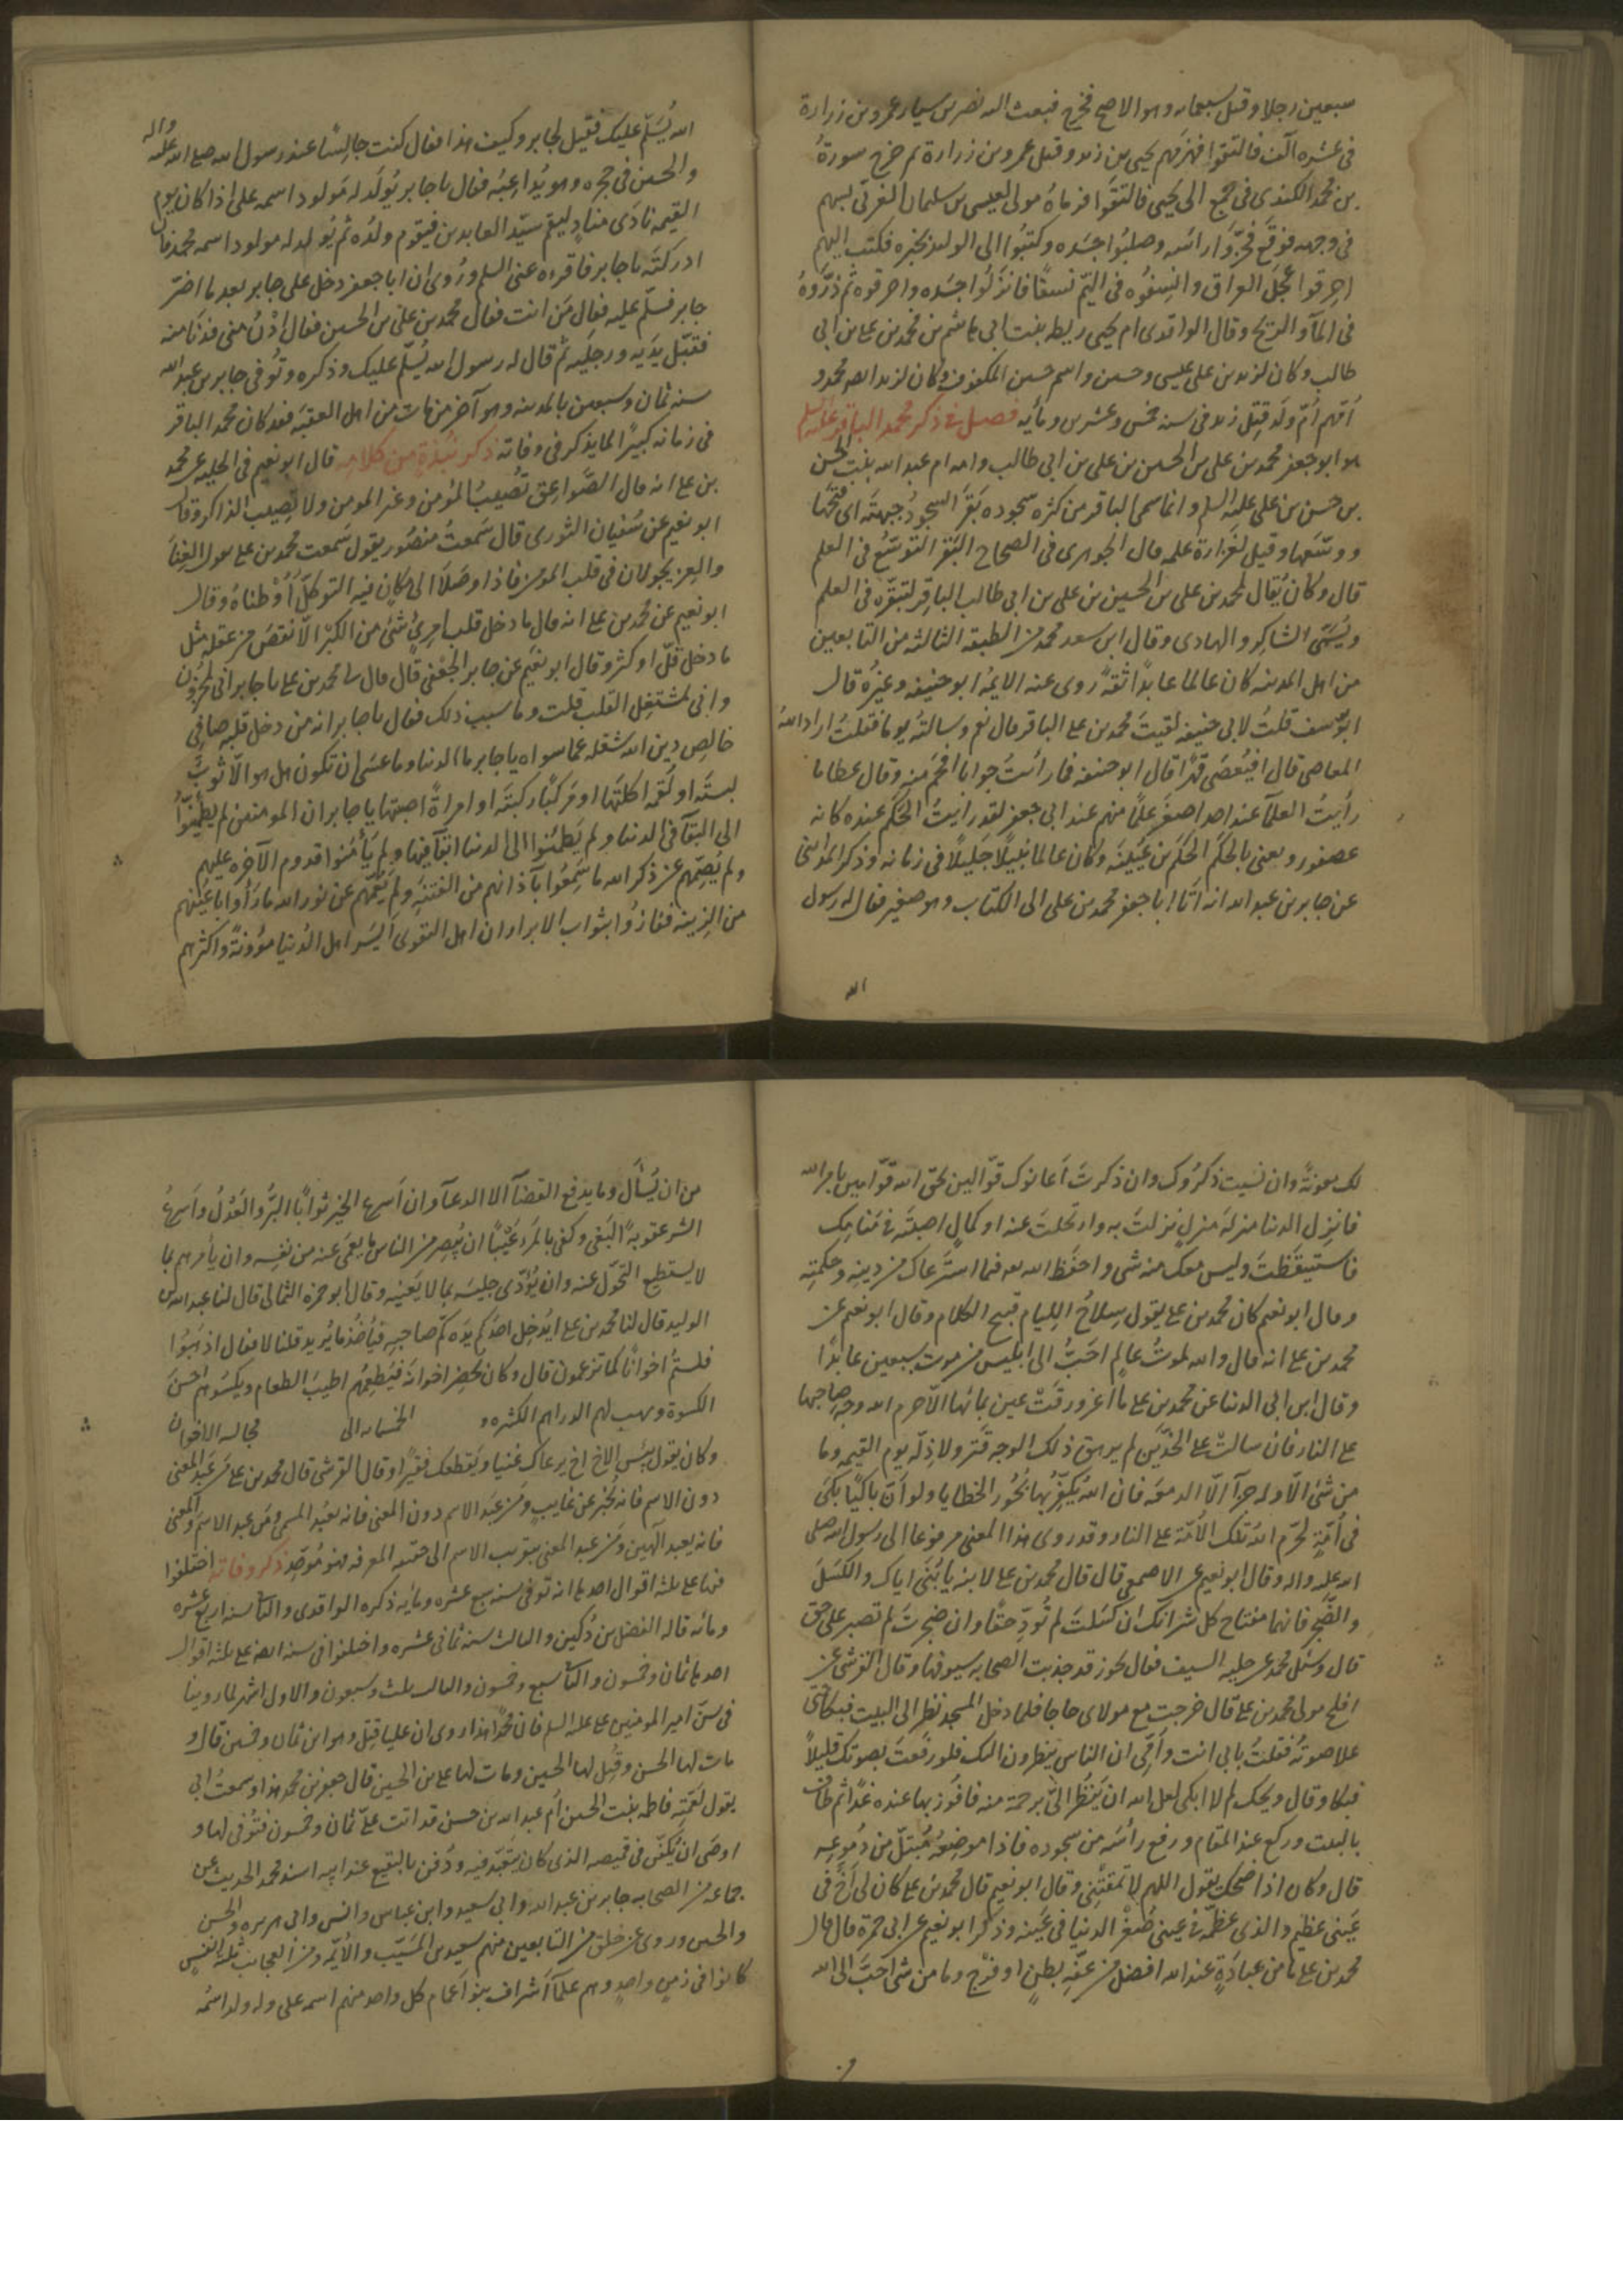 سبعين رجلا وقتل سبعمايه وهو الاصح فخرج فبعث اليه نصر بن سيار عمرو بن زرارة
فى عشره آلف فالتقوا فهزمهم يحيى بن زيد وقتل عمرو بن زرارة ثم خرج سورة
بن محمد الكندى فى جمع الى يحيى فالتقوا فرماه مولى لعيسى بن سليمان العنزى بسهم
فى وجهه فوقع فحزوا راسه وصلبوا جسده وكتبوا الى الوليد بخبره فكتب اليهم
احرقوا عجل العراق وانسفوه فى اليم نسفا فانزلوا جسده واحرقوه ثم ذروه
فى المآ والريح وقال الواقدى ام يحيى ريطه بنت ابى هاشم بن محمد بن على بن ابى
طالب وكان لزيد بن على عيسى وحسين واسم حسين المكفوف وكان لزيد ايضا محمد و
امهم ام ولد قتل زيد فى سنه خمس وعشرين ومأيه فصل فى ذكر محمد الباقر عليه السلم
هو ابو جعفر محمد بن على بن الحسين بن على بن ابى طالب وامه ام عبد الله بنت الحسن
بن حسن بن على عليه السلم وانما سمى الباقر من كثره سجوده بقر السجود جبهته اى فتحها
ووسعها وقيل لغزارة علمه قال الجوهرى فى الصحاح التبقر التوسع فى العلم
قال وكان يقال لمحمد بن على بن الحسين بن على بن ابى طالب الباقر لتبقره فى العلم
ويسمى الشاكر والهادى وقال ابن سعد محمد من الطبقه الثالثه من التابعين
من اهل المدينه كان عالما عابدا ثقة روى عنه الايمه ابو حنيفه وغيره قال
ابو يوسف قلت لابى حنيفه لقيت محمد بن على الباقر قال نعم وسالته يوما فقلت اراد الله
المعاصى قال افيعصى قهرا قال ابو حنيفه فما رايت جوابا افحم منه وقال عطا ما
رايت العلمآ عند احد اصغر علما منهم عند ابى جعفر لقد رايت الحكم عنده كانه
عصفور ويعنى بالحكم الحكم بن عيينه وكان عالما نبيلا جليلا فى زمانه وذكر المدائنى
عن جابر بن عبد الله انه اتا ابا جعفر محمد بن على الى الكتاب وهو صغير فقال له رسول
الله
الله يسلم عليك فقيل لجابر وكيف هذا فقال كنت جالسا عند رسول الله صلى الله عليه واله
والحسين فى حجره وهو يداعبه فقال يا جابر يولد له مولود اسمه على اذا كان يوم
القيمه نادى مناد ليقم سيد العابدين فيقوم ولده ثم يولد له مولود اسمه محمد فان
ادركته يا جابر فاقره عنى السلم وروى ان ابا جعفر دخل على جابر بعد ما اضر
جابر فسلم عليه فقال من انت فقال محمد بن على بن الحسين فقال ادن منى فدنا منه
فقبل يديه ورجليه ثم قال له رسول الله يسلم عليك وذكره وتوفى جابر بن عبد الله
سنه ثمان وسبعين بالمدينه وهو آخر من مات من اهل العقبه فقد كان محمد الباقر
فى زمانه كبيرا لما يذكر فى وفاته ذكر نبذة من كلامه قال ابو نعيم فى الحليه عن محمد
بن على انه قال الصواعق تصيب المومن وغير المومن ولا تصيب الذاكر وقال
ابو نعيم عن سفيان الثورى قال سمعت منصور يقول سمعت محمد بن على يقول الغنا
والعز يجولان فى قلب المومن فاذا وصلا الى مكان فيه التوكل اوطناه وقال
ابو نعيم عن محمد بن على انه قال ما دخل قلب امرئ شئ من الكبر الا نقص من عقله مثل
ما دخل قل او كثر وقال ابو نعيم عن جابر الجعفى قال قال لى محمد بن على يا جابر انى لمحزون
وانى لمشتغل القلب قلت وما سبب ذلك فقال يا جابر انه من دخل قلبه صافى
خالص دين الله شغله عما سواه يا جابر ما الدنيا وما عسى ان تكون هل هو الا ثوب
لبسته او لقمه اكلتها او مركبا ركبته او امراة اصبتها يا جابر ان المومنين لم يطمئنوا
الى البقآ فى الدنيا ولم يطمئنوا الى الدنيا ابقآ فيها ولم يأمنوا قدوم الآخره عليهم
ولم يصمهم عن ذكر الله ما سمعوا بآذانهم من الفتنه ولم يعمهم عن نور الله ما رأوا باعينهم
من الزينه ففازوا بثواب الابرار ان اهل التقوى ايسر اهل الدنيا مؤونة واكثرهم
لك معونة وان نسيت ذكروك وان ذكرت اعانوك قوالين لحق الله قوامين بامر الله
فانزل الدنيا منزلة منزل نزلت به وارتحلت عنه او كمال اصبته فى منامك
فاستيقظت وليس معك منه شى واحفظ الله فيما استرعاك من دينه وحكمته
وقال ابو نعيم كان محمد بن على يقول سلاح الليام قبيح الكلام وقال ابو نعيم عن
محمد بن على انه قال والله لموت عالم احب الى ابليس من موت سبعين عابدا
وقال ابن ابى الدنيا عن محمد بن على ما اغرورقت عين بمائها الا حرم الله وجه صاحبها
على النار فان سالت على الخدين لم يرهق ذلك الوجه قتر ولا ذلة يوم القيمه وما
من شئ الا وله جزآ الا الدمعه فان الله يكفر بها بحور الخطايا ولو ان باكيا بكى
فى امة لحرم الله تلك الامة على النار وقد روى هذا المعنى مرفوعا الى رسول الله صلى
الله عليه واله وقال ابو نعيم عن الاصمعى قال قال محمد بن على لابنه يا بنى اياك والكسل
والضجر فانهما مفتاح كل شر انك ان كسلت لم تود حقا وان ضجرت لم تصبر على حق
قال وسئل محمد عن حليه السيف فقال يجوز قد جذبت الصحابه سيوفها وقال القرشى عن
افلح مولى محمد بن على قال خرجت مع مولاى حاجا فلما دخل المسجد نظر الى البيت فبكا حتى
علا صوته فقلت بابى انت وامى ان الناس ينظرون اليك فلو رفعت بصوتك قليلا
فبكا وقال ويحك لم لا ابكى لعل الله ان ينظر الى برحمة منه فافوز بها عنده غدا ثم طاف
بالبيت وركع عند المقام ورفع رأسه من سجوده فاذا موضعه مبتل من دموعه
قال وكان اذا ضحك يقول اللهم لا تمقتنى وقال ابو نعيم قال محمد بن على كان لى اخ فى
عينى عظيم والذى عظمه فى عينى صغر الدنيا فى عينه وذكر ابو نعيم عن ابى حمزة قال قال
محمد بن على ما من عبادة عند الله افضل من عفه بطن او فرج وما من شئ احب الى الله
من ان يسأل وما يدفع القضآ الا الدعآ وان اسرع الخير ثوابا البر والعدل واسرع
الشر عقوبة البغى وكفى بالمرء عيبا ان يبصر من الناس ما يعمى عنه من نفسه وان يأمرهم بما
لا يستطيع التحول عنه وان يؤذى جليسه بما لا يعنيه وقال ابو حمزه الثمالى قال لنا عبد الله بن
الوليد قال لنا محمد بن على ايدخل احدكم يده كم صاحبه فيأخذ ما يريد قلنا لا فقال اذهبوا
فلستم اخوانا كما تزعمون قال وكان يحضر اخوانه فيطعمهم اطيب الطعام ويكسوهم احسن
الكسوة ويهب لهم الدراهم الكثيره الخمسمايه الى مجالسه الاخوان
وكان يقول بئس الاخ اخ يرعاك غنيا ويقطعك فقيرا وقال القرشى قال محمد بن على من عبد المعنى
دون الاسم فانه يخبر عن غايب ومن عبد الاسم دون المعنى فانه يعبد المسمى ومن عبد الاسم والمعنى
فانه يعبد آلهين ومن عبد المعنى بتقريب الاسم الى حقيقه المعرفه فهو موحد ذكر وفاته اختلفوا
فيها على ثلثه اقوال احدها انه توفى سنه سبع عشره ومايه ذكره الواقدى والثانى سنه اربع عشره
ومائه قاله الفضل بن دكين والثالث سنه ثمانى عشره واختلفوا فى سنه ايضا على ثلثه اقوال
احدها ثمان وخمسون والثانى سبع وخمسون والثالث ثلث وسبعون والاول اشهر لما روينا
فى سن امير المومنين على عليه السلم فان محمدا هذا روى ان عليا قتل وهو ابن ثمان وخمسين قال و
مات لها الحسن وقتل لها الحسين ومات لها على بن الحسين قال جعفر بن محمد هذا وسمعت ابى
يقول لعمته فاطمه بنت الحسين ام عبد الله بن حسن قد اتت على ثمان وخمسون فتوفى لها و
اوصى ان يكفن فى قميصه الذى كان يتعبد فيه ودفن بالبقيع عند ابيه اسند محمد الحديث عن
جماعه من الصحابه جابر بن عبد الله وابى سعيد وابن عباس وانس وابى هريره والحسن
والحسين وروى عن خلق من التابعين منهم سعيد بن المسيب والايمه ومن العجايب ثلثه انفس
كانوا فى زمن واحد وهم علمآ اشراف بنو اعمام كل واحد منهم اسمه على وله ولد اسمه